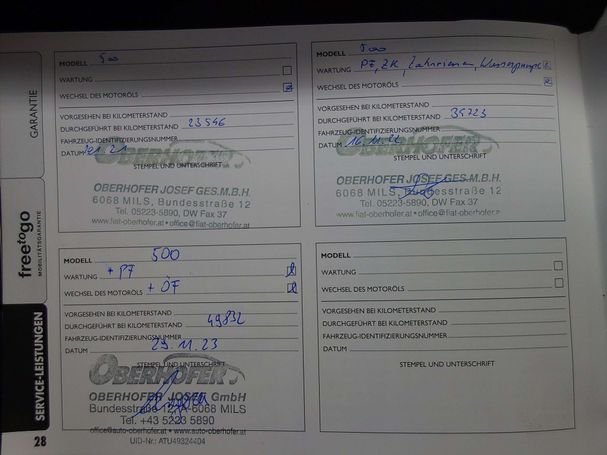 GARANTIE
freetogo
MOBILITÄTSGARANTIE
SERVICE-LEISTUNGEN
28
MODELL 500
WARTUNG
WECHSEL DES MOTORÖLS
VORGESEHEN BEI KILOMETERSTAND
DURCHGEFÜHRT BEI KILOMETERSTAND 23546
FAHRZEUG-IDENTIFIZIERUNGSNUMMER
DATUM
OBERHOFER
STEMPEL UND UNTERSCHRIFT
OBERHOFER JOSEF GES.M.B.H.
6068 MILS, Bundesstraße 12
Tel. 05223-5890, DW Fax 37
www.fiat-oberhofer.at • office@fiat-oberhofer.at
MODELL 500
WARTUNG PF, ZK, Zahnriemen, Wasserpumpe
WECHSEL DES MOTORÖLS
VORGESEHEN BEI KILOMETERSTAND
DURCHGEFÜHRT BEI KILOMETERSTAND 35723
FAHRZEUG-IDENTIFIZIERUNGSNUMMER
DATUM 16.11.22
OBERHOFER
STEMPEL UND UNTERSCHRIFT
OBERHOFER JOSEF GES.M.B.H.
6068 MILS, Bundesstraße 12
Tel. 05223-5890, DW Fax 37
www.fiat-oberhofer.at • office@fiat-oberhofer.at
MODELL 500
WARTUNG + PF
WECHSEL DES MOTORÖLS + ÖF
VORGESEHEN BEI KILOMETERSTAND
DURCHGEFÜHRT BEI KILOMETERSTAND 49832
FAHRZEUG-IDENTIFIZIERUNGSNUMMER
DATUM 29.11.23
STEMPEL UND UNTERSCHRIFT
OBERHOFER
OBERHOFER JOSEF GmbH
Bundesstraße 12, A-6068 MILS
Tel. +43 5223 5890
office@auto-oberhofer.at • www.auto-oberhofer.at
UID-Nr.: ATU49324404
MODELL
WARTUNG
WECHSEL DES MOTORÖLS
VORGESEHEN BEI KILOMETERSTAND
DURCHGEFÜHRT BEI KILOMETERSTAND
FAHRZEUG-IDENTIFIZIERUNGSNUMMER
DATUM
STEMPEL UND UNTERSCHRIFT